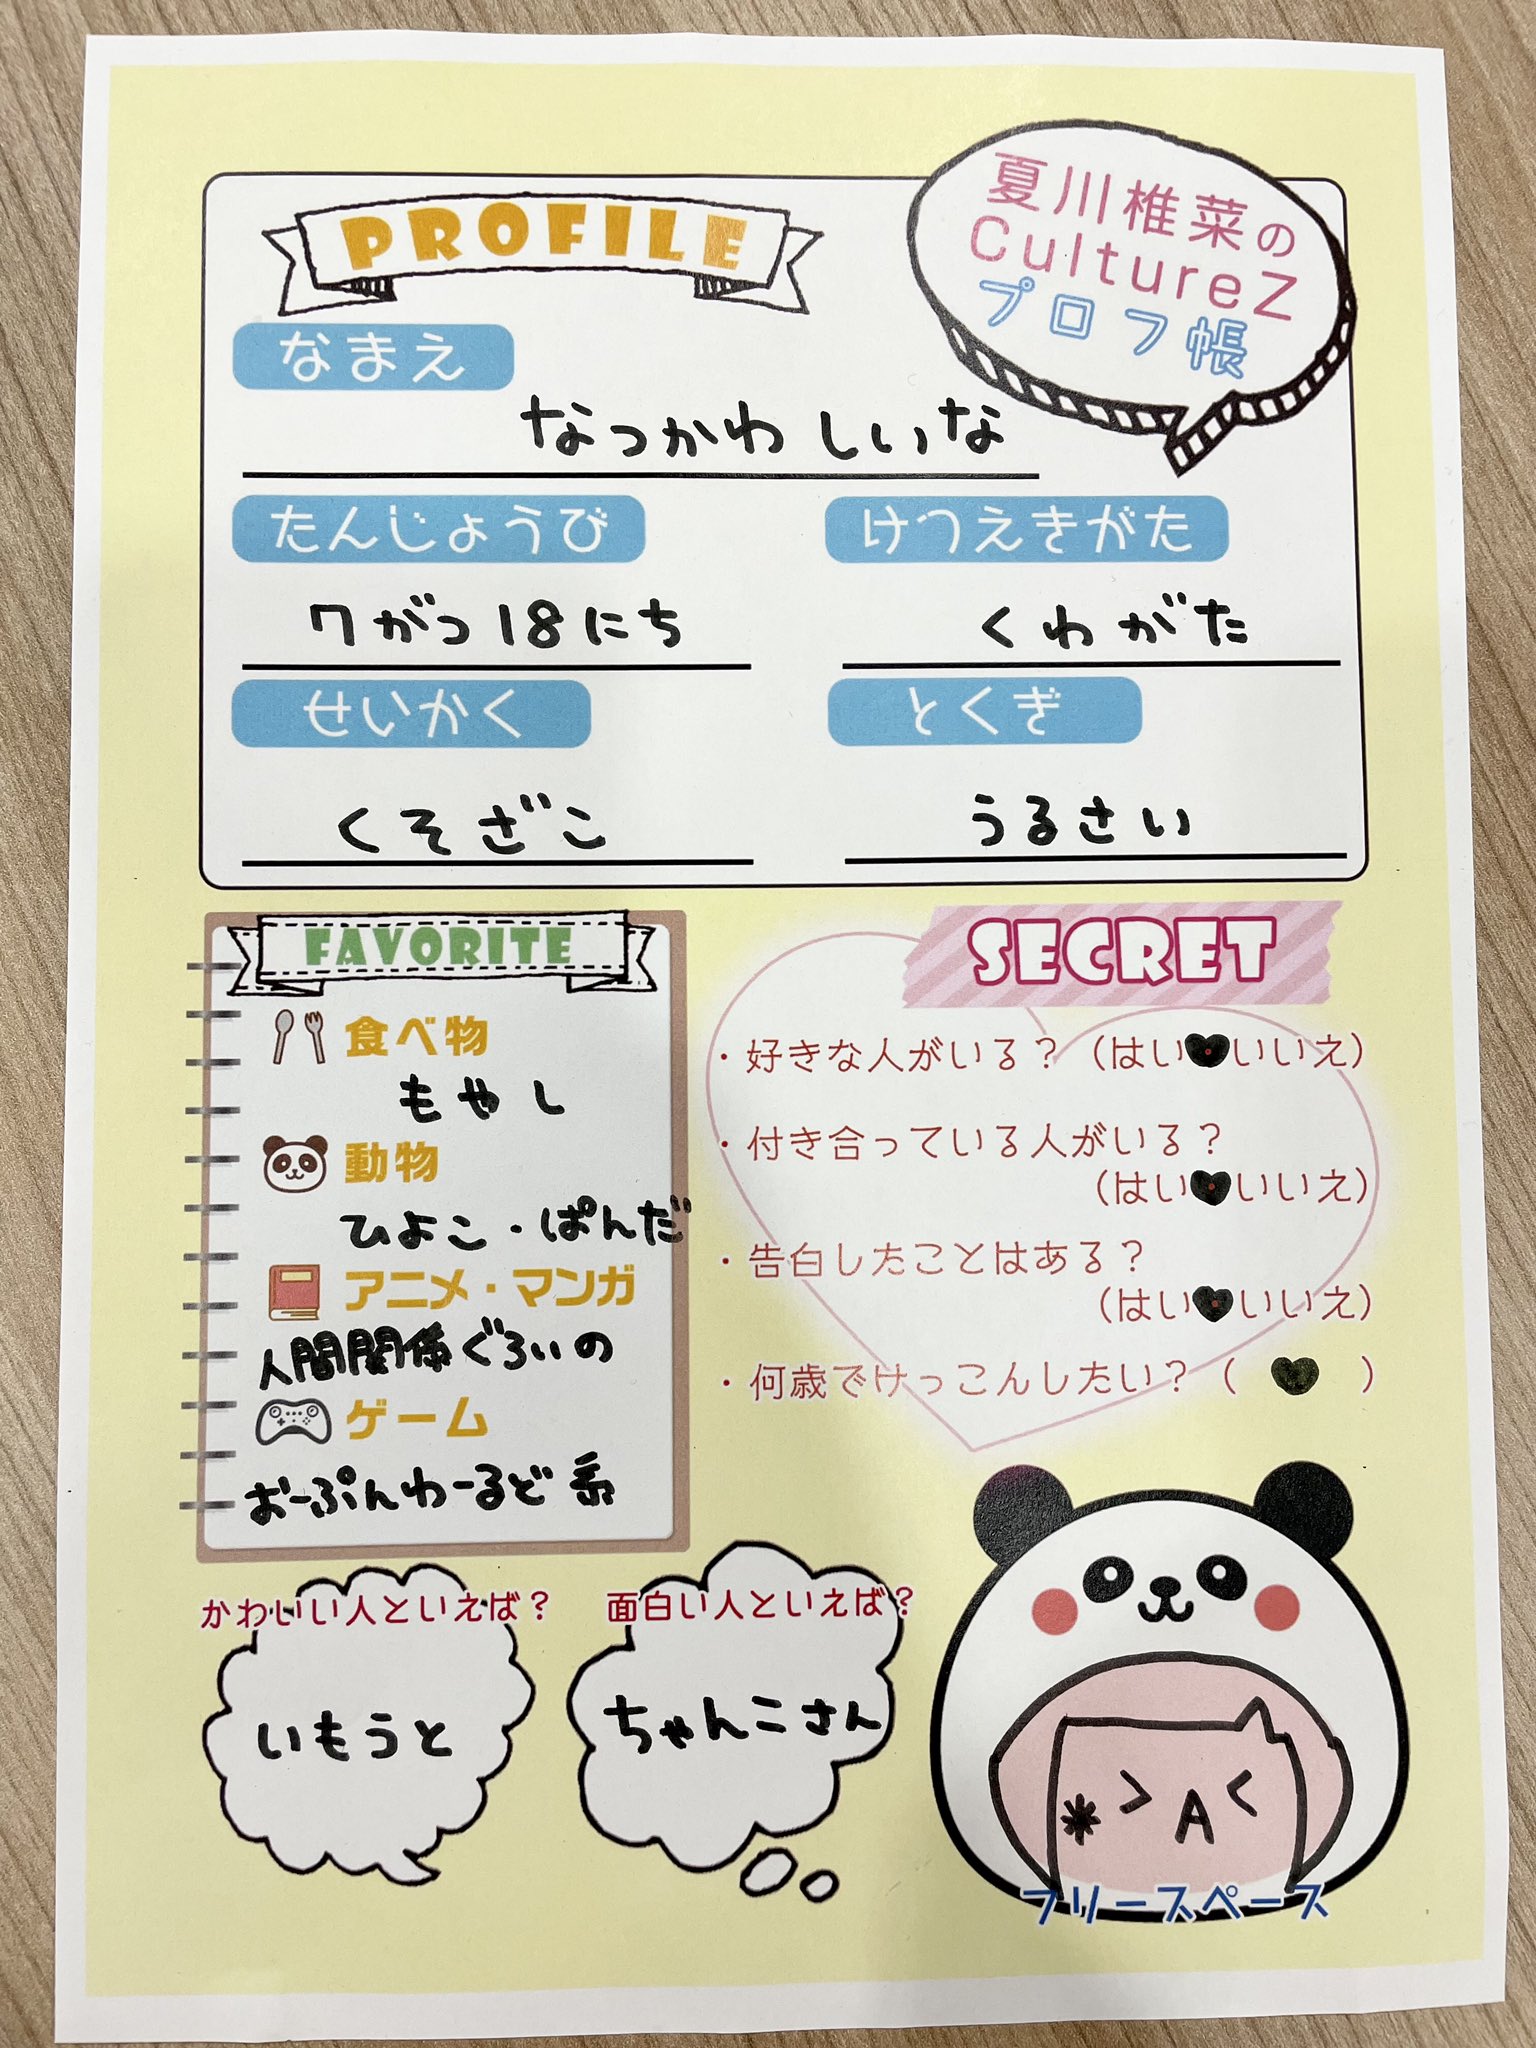 PROFILE
夏川椎菜の
CultureZ
プロフ帳
なまえ
なつかわ しいな
たんじょうび
7がつ18にち
けつえきがた
くわがた
せいかく
くそざこ
とくぎ
うるさい
FAVORITE
食べ物
もやし
動物
ひよこ・ぱんだ
アニメ・マンガ
人間関係ぐろいの
ゲーム
おーぷんわーるど系
SECRET
・好きな人がいる？（はい・いいえ）
・付き合っている人がいる？
（はい・いいえ）
・告白したことはある？
（はい・いいえ）
・何歳でけっこんしたい？（ ♥ ）
かわいい人といえば？
いもうと
面白い人といえば？
ちゃんこさん
* > A <
フリースペース